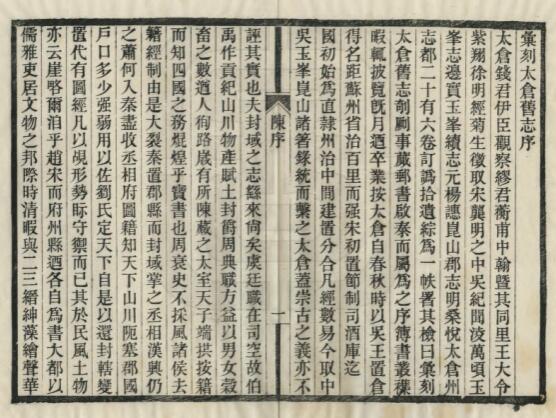 彙刻太倉舊志序
太倉錢君伊臣觀察繆君衡甫中翰暨其同里王大令
紫翔徐明經菊生徵取宋龔明之中吳紀聞淩萬頃玉
峯志邊實玉峯續志元楊譓崑山郡志明桑悅太倉州
志都二十有六卷訂譌拾遺綜爲一帙署其檢曰彙刻
太倉舊志剞劂事蕆郵書啟泰而屬爲之序簿書叢襍
暇輒披覽旣月迺卒業按太倉自春秋時以吳王置倉
得名距蘇州省治百里而强宋初置節制司酒庫迄
國初始爲直隷州治中閒建置分合凡經數易今取中
吳玉峯崑山諸著錄統而繫之太倉蓋崇古之義亦不
陳序
一
誣其實也夫封域之志繇來尙矣虞廷職在司空故伯
禹作貢紀山川物產賦土封爵周典職方益以男女穀
畜之數遒人徇路歲有所陳藏之太室天子端拱按籍
而知四國之務焜煌乎寶書也周衰史不採風諸侯去
籍經制由是大裂秦置郡縣而封域掌之丞相漢興仍
之蕭何入秦盡收丞相府圖籍知天下山川阨塞郡國
戸口多少强弱用以佐劉氏定天下自是以還封轄變
置代有圖經凡以覘形勢眎守禦而已其於民風土物
亦云崖畧爾洎乎趙宋而府州縣迺各自爲書大都以
儒雅吏居文物之邦際時清暇與二三縉紳藻繪聲華